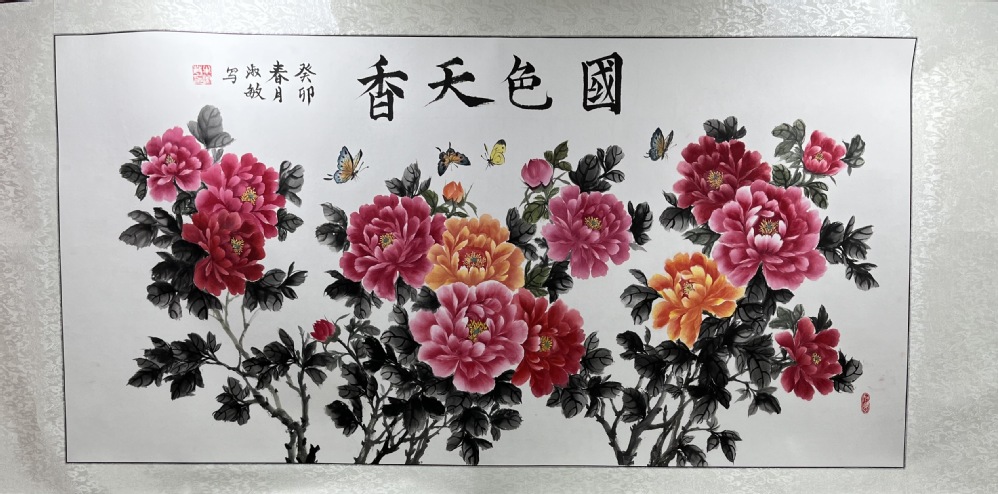 國色天香
癸卯
春月
淑敏
写